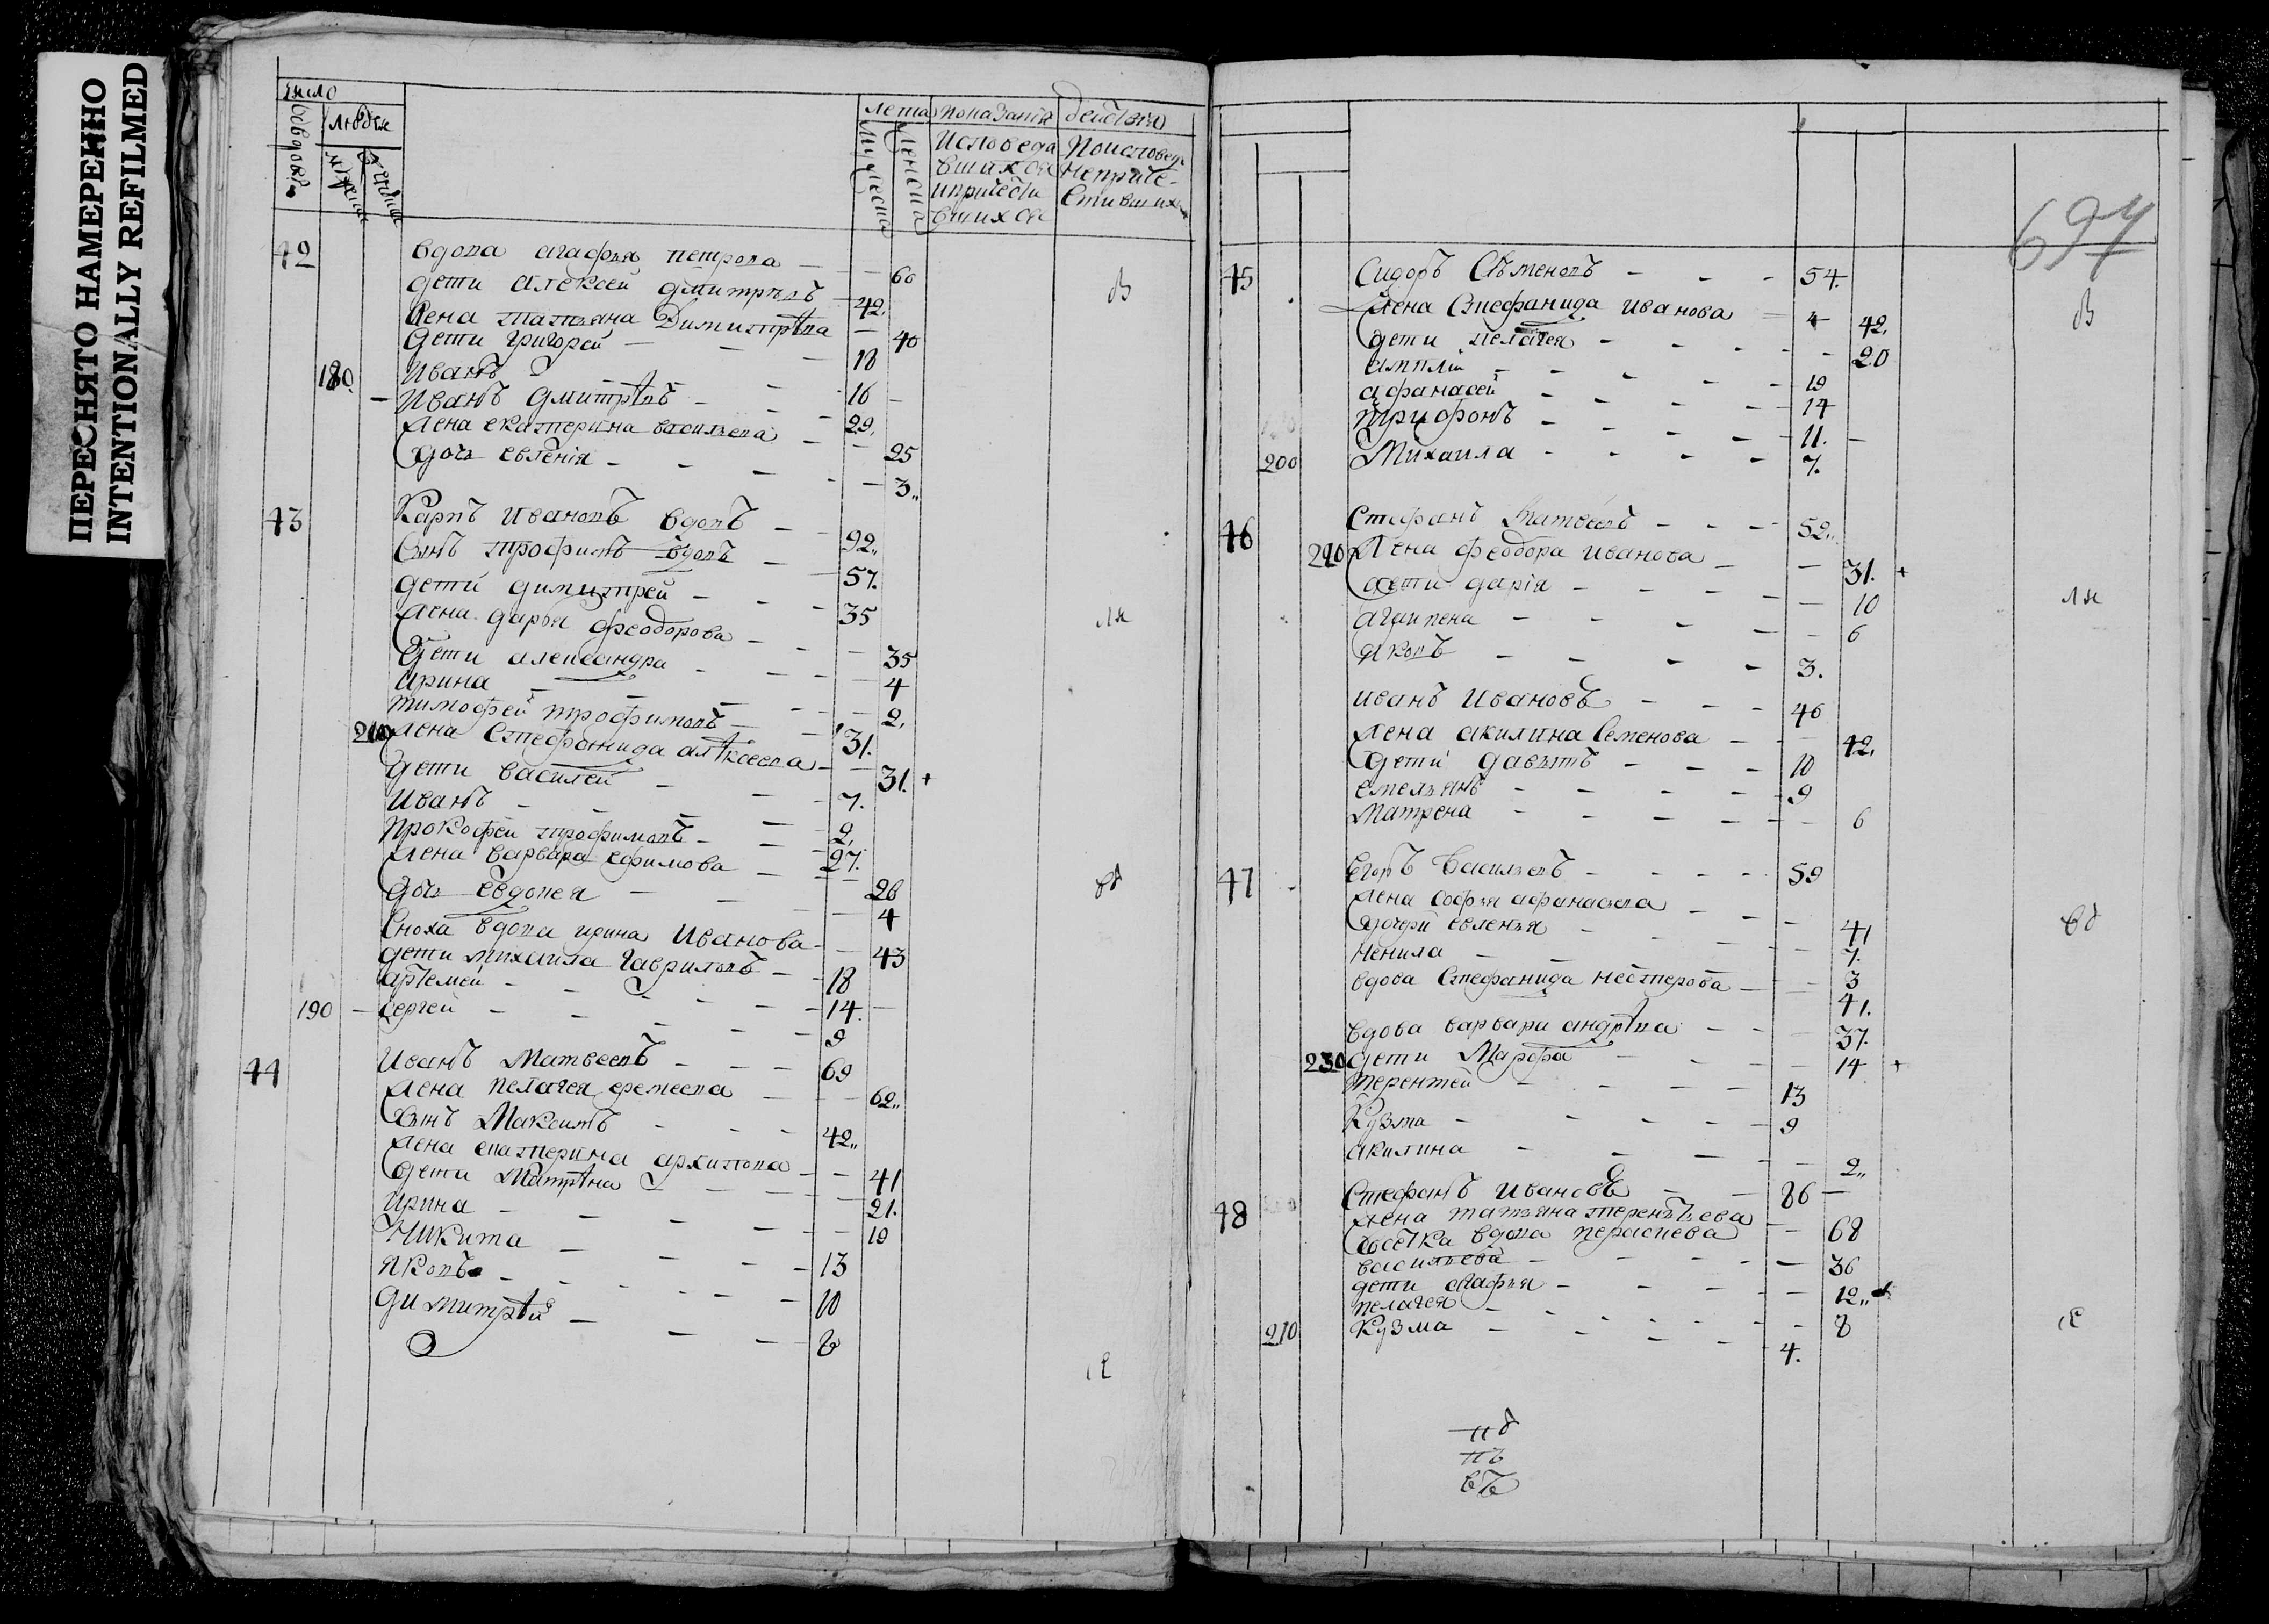 ПЕРЕСНЯТО НАМЕРЕННО
INTENTIONALLY REFILMED
число
людей
лета показанiя действiя
Исповеда Поисповед
вшихся Неприче-
ипричести стивших
вшихся
42 вдова агафья петрова 60
дети алексей дмитрѣвъ 42. в
жена татьяна Димитрѣва 40
дети григорей 18
180 Иванъ 16
Иванъ дмитрѣвъ 29.
жена екатерина василева 25
дочь евгенiя 3„
43 Карпъ Ивановъ вдовъ 92„
сынъ трофимъ вдовъ 57.
дети димитрей 35
жена дарья феодорова 35
дети александра 4
ирина 2.
тимофей трофимовъ 31.
210 жена Стефанида алѣксеева 31. +
дети василей 7.
Иванъ 2.
прокофей трофимовъ 27.
жена варвара ефимова 26
дочь евдокея 4
Сноха вдова ирина Иванова 43
дети михаила гавриловъ 18
артемей 14.
190 сергей 9
44 Иванъ Матвеевъ 69
жена пелагея 62„
сынъ Максимъ 42„
жена екатерина архипова 41
дети Матрѣна 21.
Ирина 19
Никита 13
яковъ 10
димитрѣй 8
694
45 Сидоръ Съменовъ 54.
жена Стефанида иванова 42. в
дети пелагея 20
19
афанасей 14
трифонъ 11.
200 Михаила 7.
46 Стефанъ Матвеевъ 52„
220 жена феодора иванова 31. +
дети дарiя 10
агрипена 6
яковъ 3.
иванъ Ивановъ 46
жена акилина Семенова 42.
дети давытъ 10
емельянъ 9
Матрена 6
47 Егоръ Васильевъ 59
жена софья афанасева 41
дочери евгенья 7.
Ненила 3
вдова Стефанида нестерова 41.
вдова варвара андрѣва 37.
230 дети Марфа 14 +
терентей 13
Кузма 9
акилина 2„
48 Стефанъ Ивановъ 86
жена татьяна терентьева 68
вдова
васильева 36
дети агафья 12„
пелагея 8
210 Кузма 4.